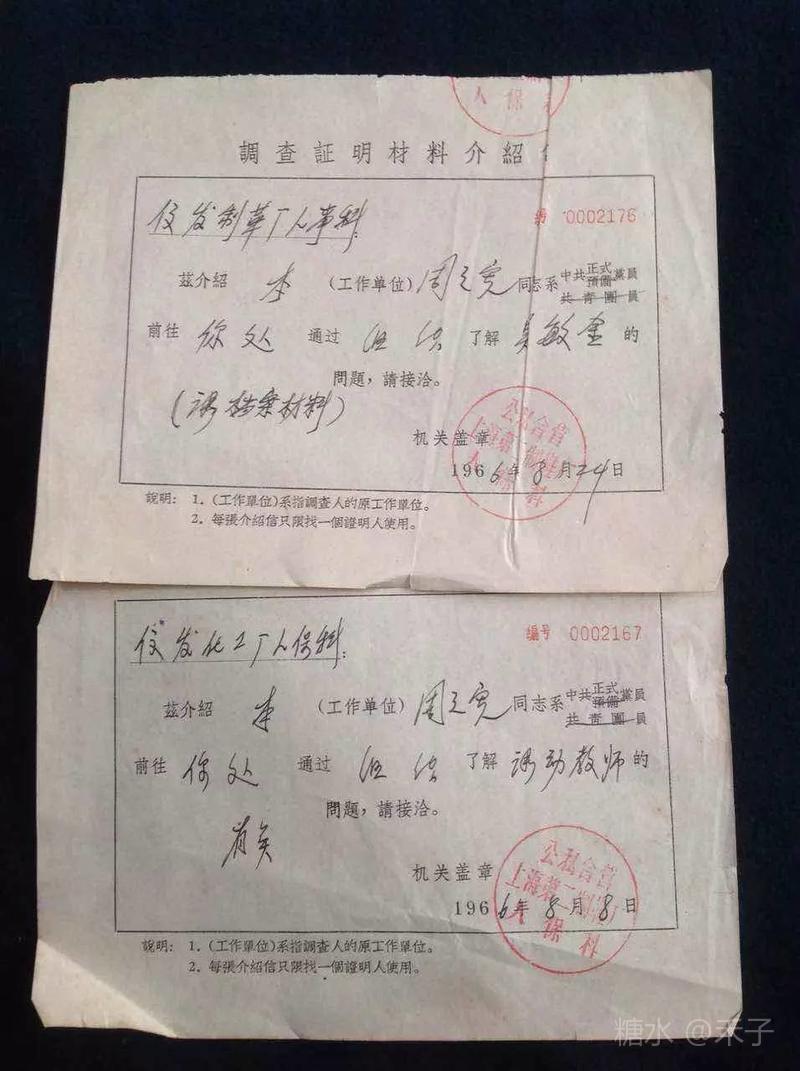 人保科
調查証明材料介紹
編 0002176
发制革厂人事科:
茲介紹 本 (工作单位) 周之宪 同志系 中共正式預備黨員 共青團員
前往 你处 通过 了解 吴敏金 的
問題,請接洽。
(档案材料)
机关盖章
公私合营
上海第一制
人保科
1966年8月24日
說明: 1.(工作單位)系指調查人的原工作單位。
2.每張介紹信只限找一個證明人使用。
編号 0002167
发化工厂人保科:
茲介紹 本 (工作单位) 周之宪 同志系 中共正式預備黨員 共青團員
前往 你处 通过 了解 教师 的
問題,請接洽。
有关
机关盖章
公私合营
上海第一制
人保科
1966年8月8日
說明: 1.(工作單位)系指調查人的原工作單位。
2.每張介紹信只限找一個證明人使用。
糖水 @禾子